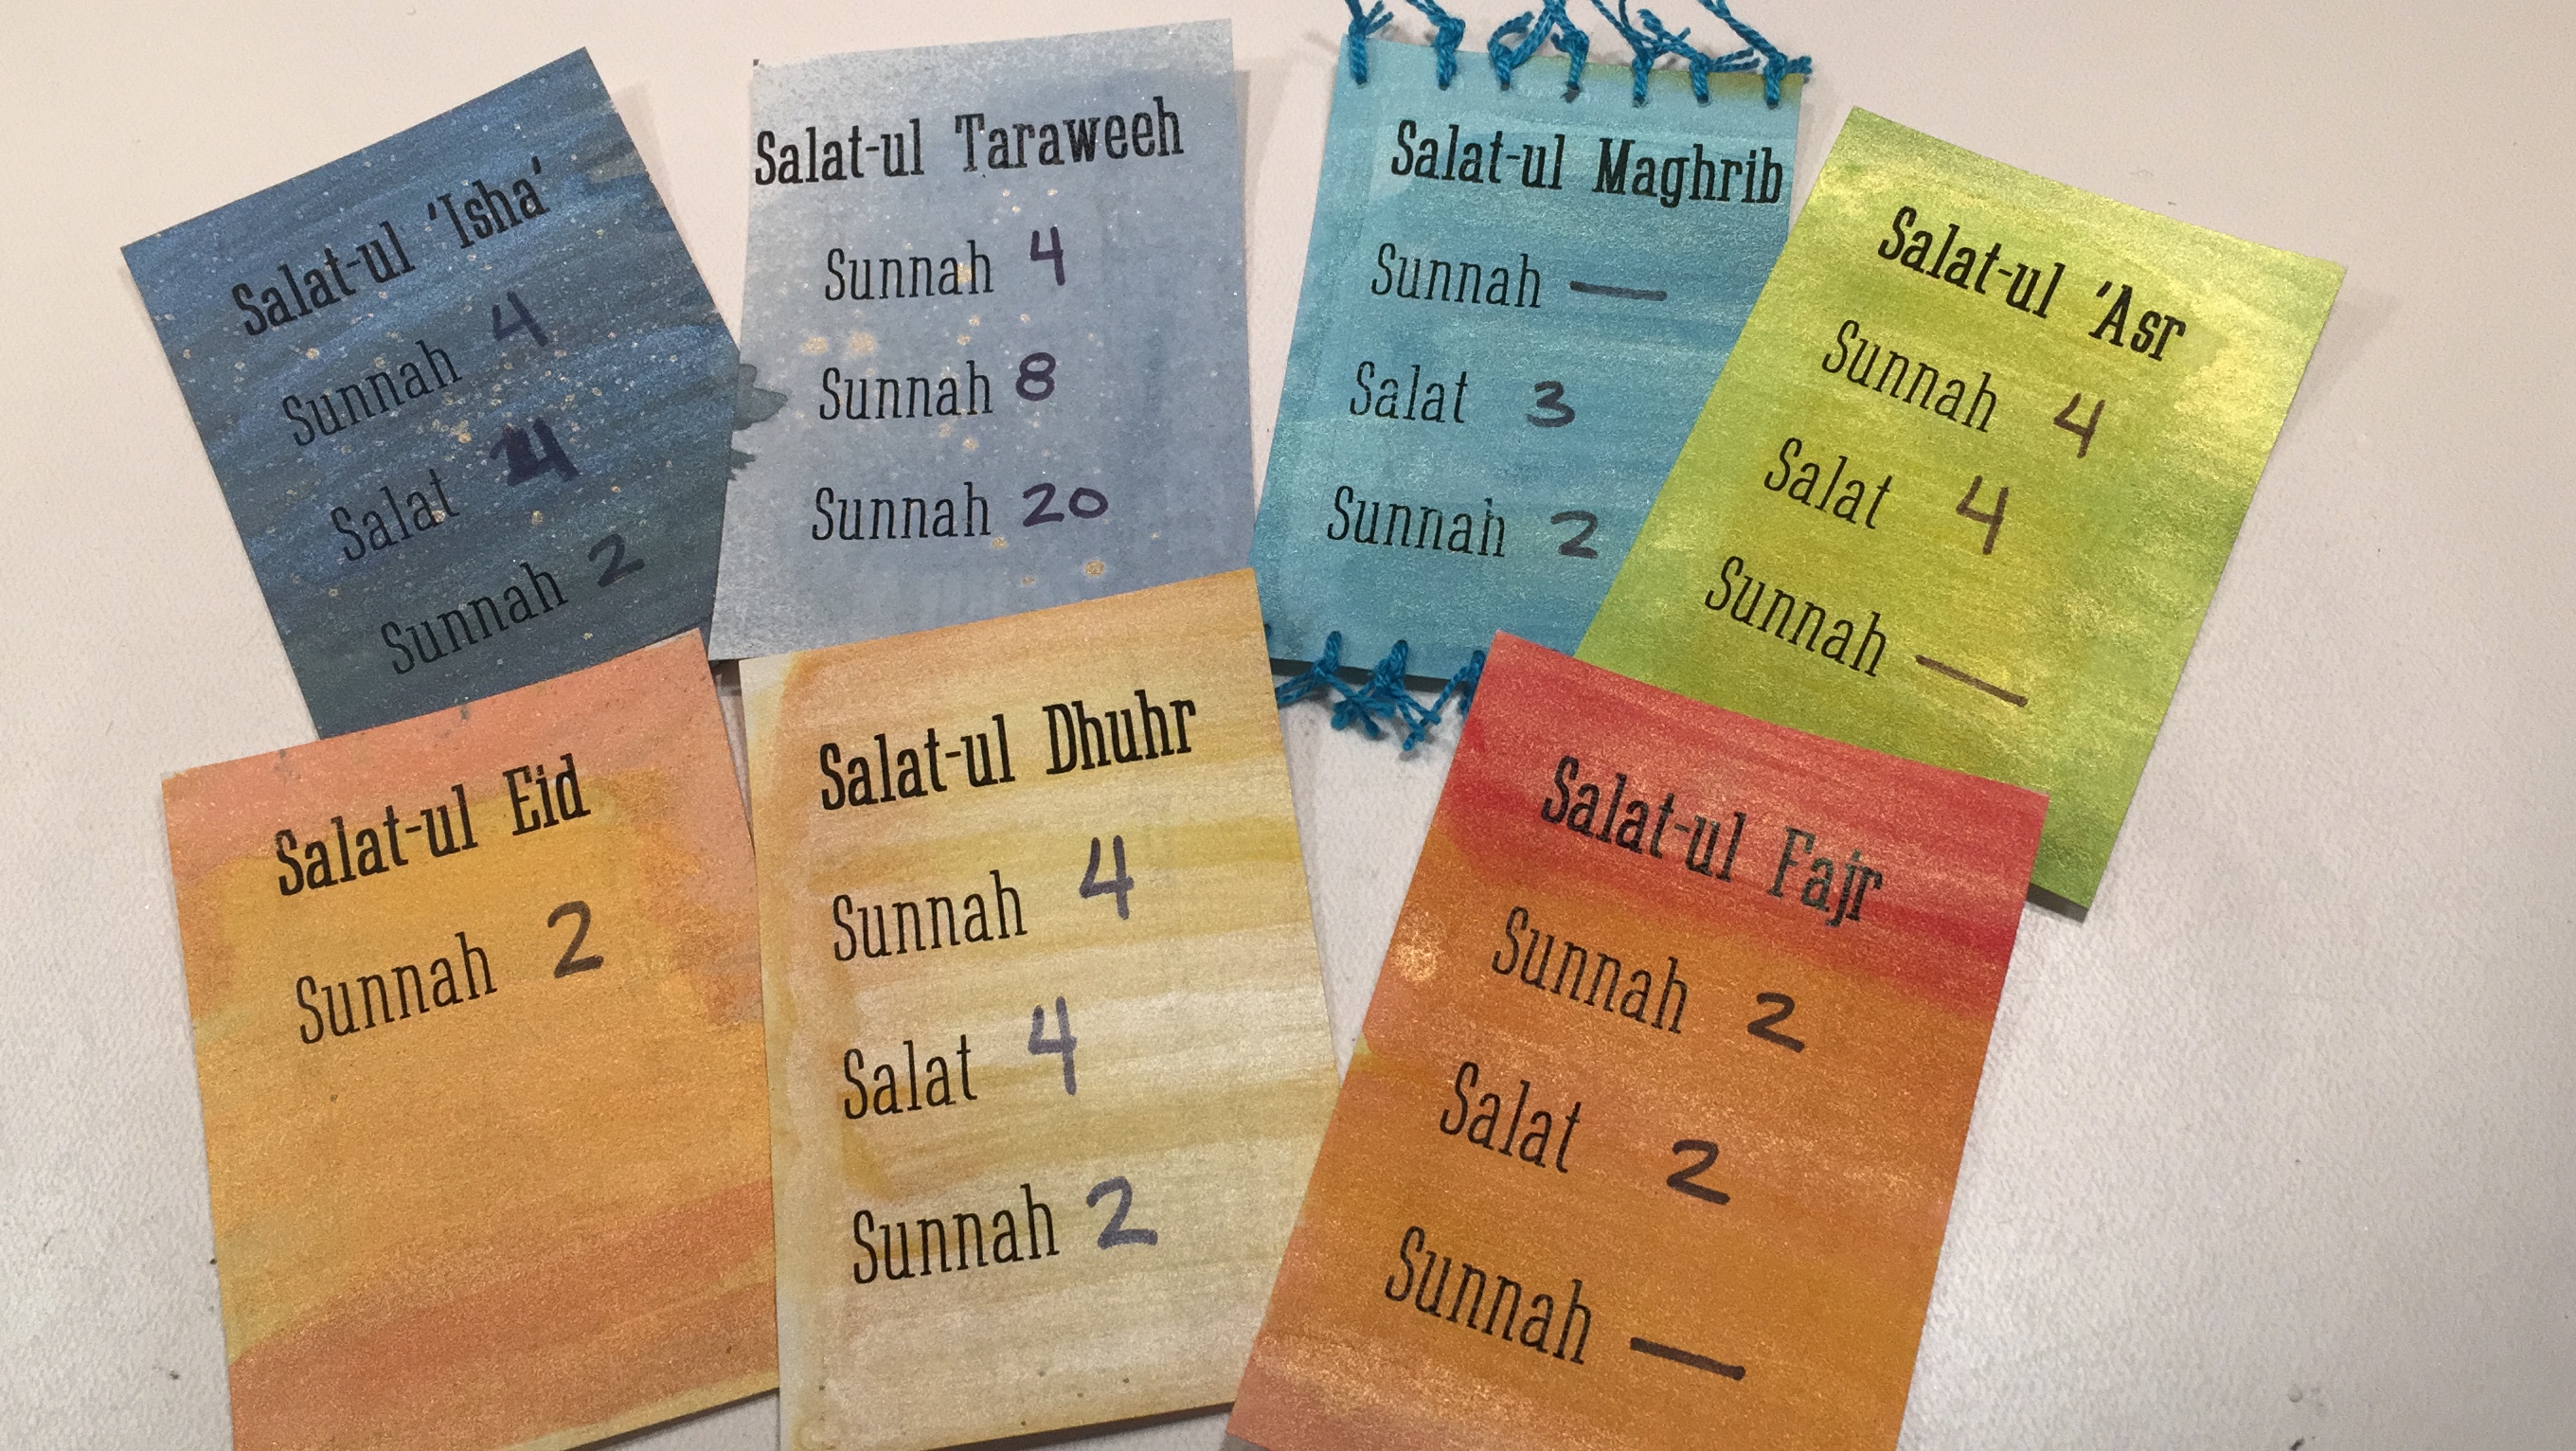 Salat-ul 'Isha'
Sunnah 4
Salat 4
Sunnah 2
Salat-ul Taraweeh
Sunnah 4
Sunnah 8
Sunnah 20
Salat-ul Maghrib
Sunnah —
Salat 3
Sunnah 2
Salat-ul 'Asr
Sunnah 4
Salat 4
Sunnah —
Salat-ul Eid
Sunnah 2
Salat-ul Dhuhr
Sunnah 4
Salat 4
Sunnah 2
Salat-ul Fajr
Sunnah 2
Salat 2
Sunnah —